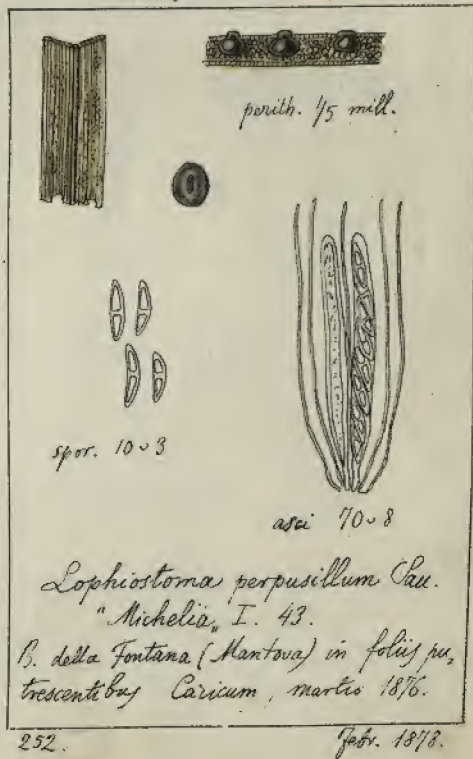 perith. 1/5 mill.
spor. 10 ⌣ 3
asci 70 ⌣ 8
Lophiostoma perpusillum Sac.
"Michelia„ I. 43.
B. della Fontana (Mantova) in foliis pu-
trescentibus Caricum, martio 1876.
252. Febr. 1878.